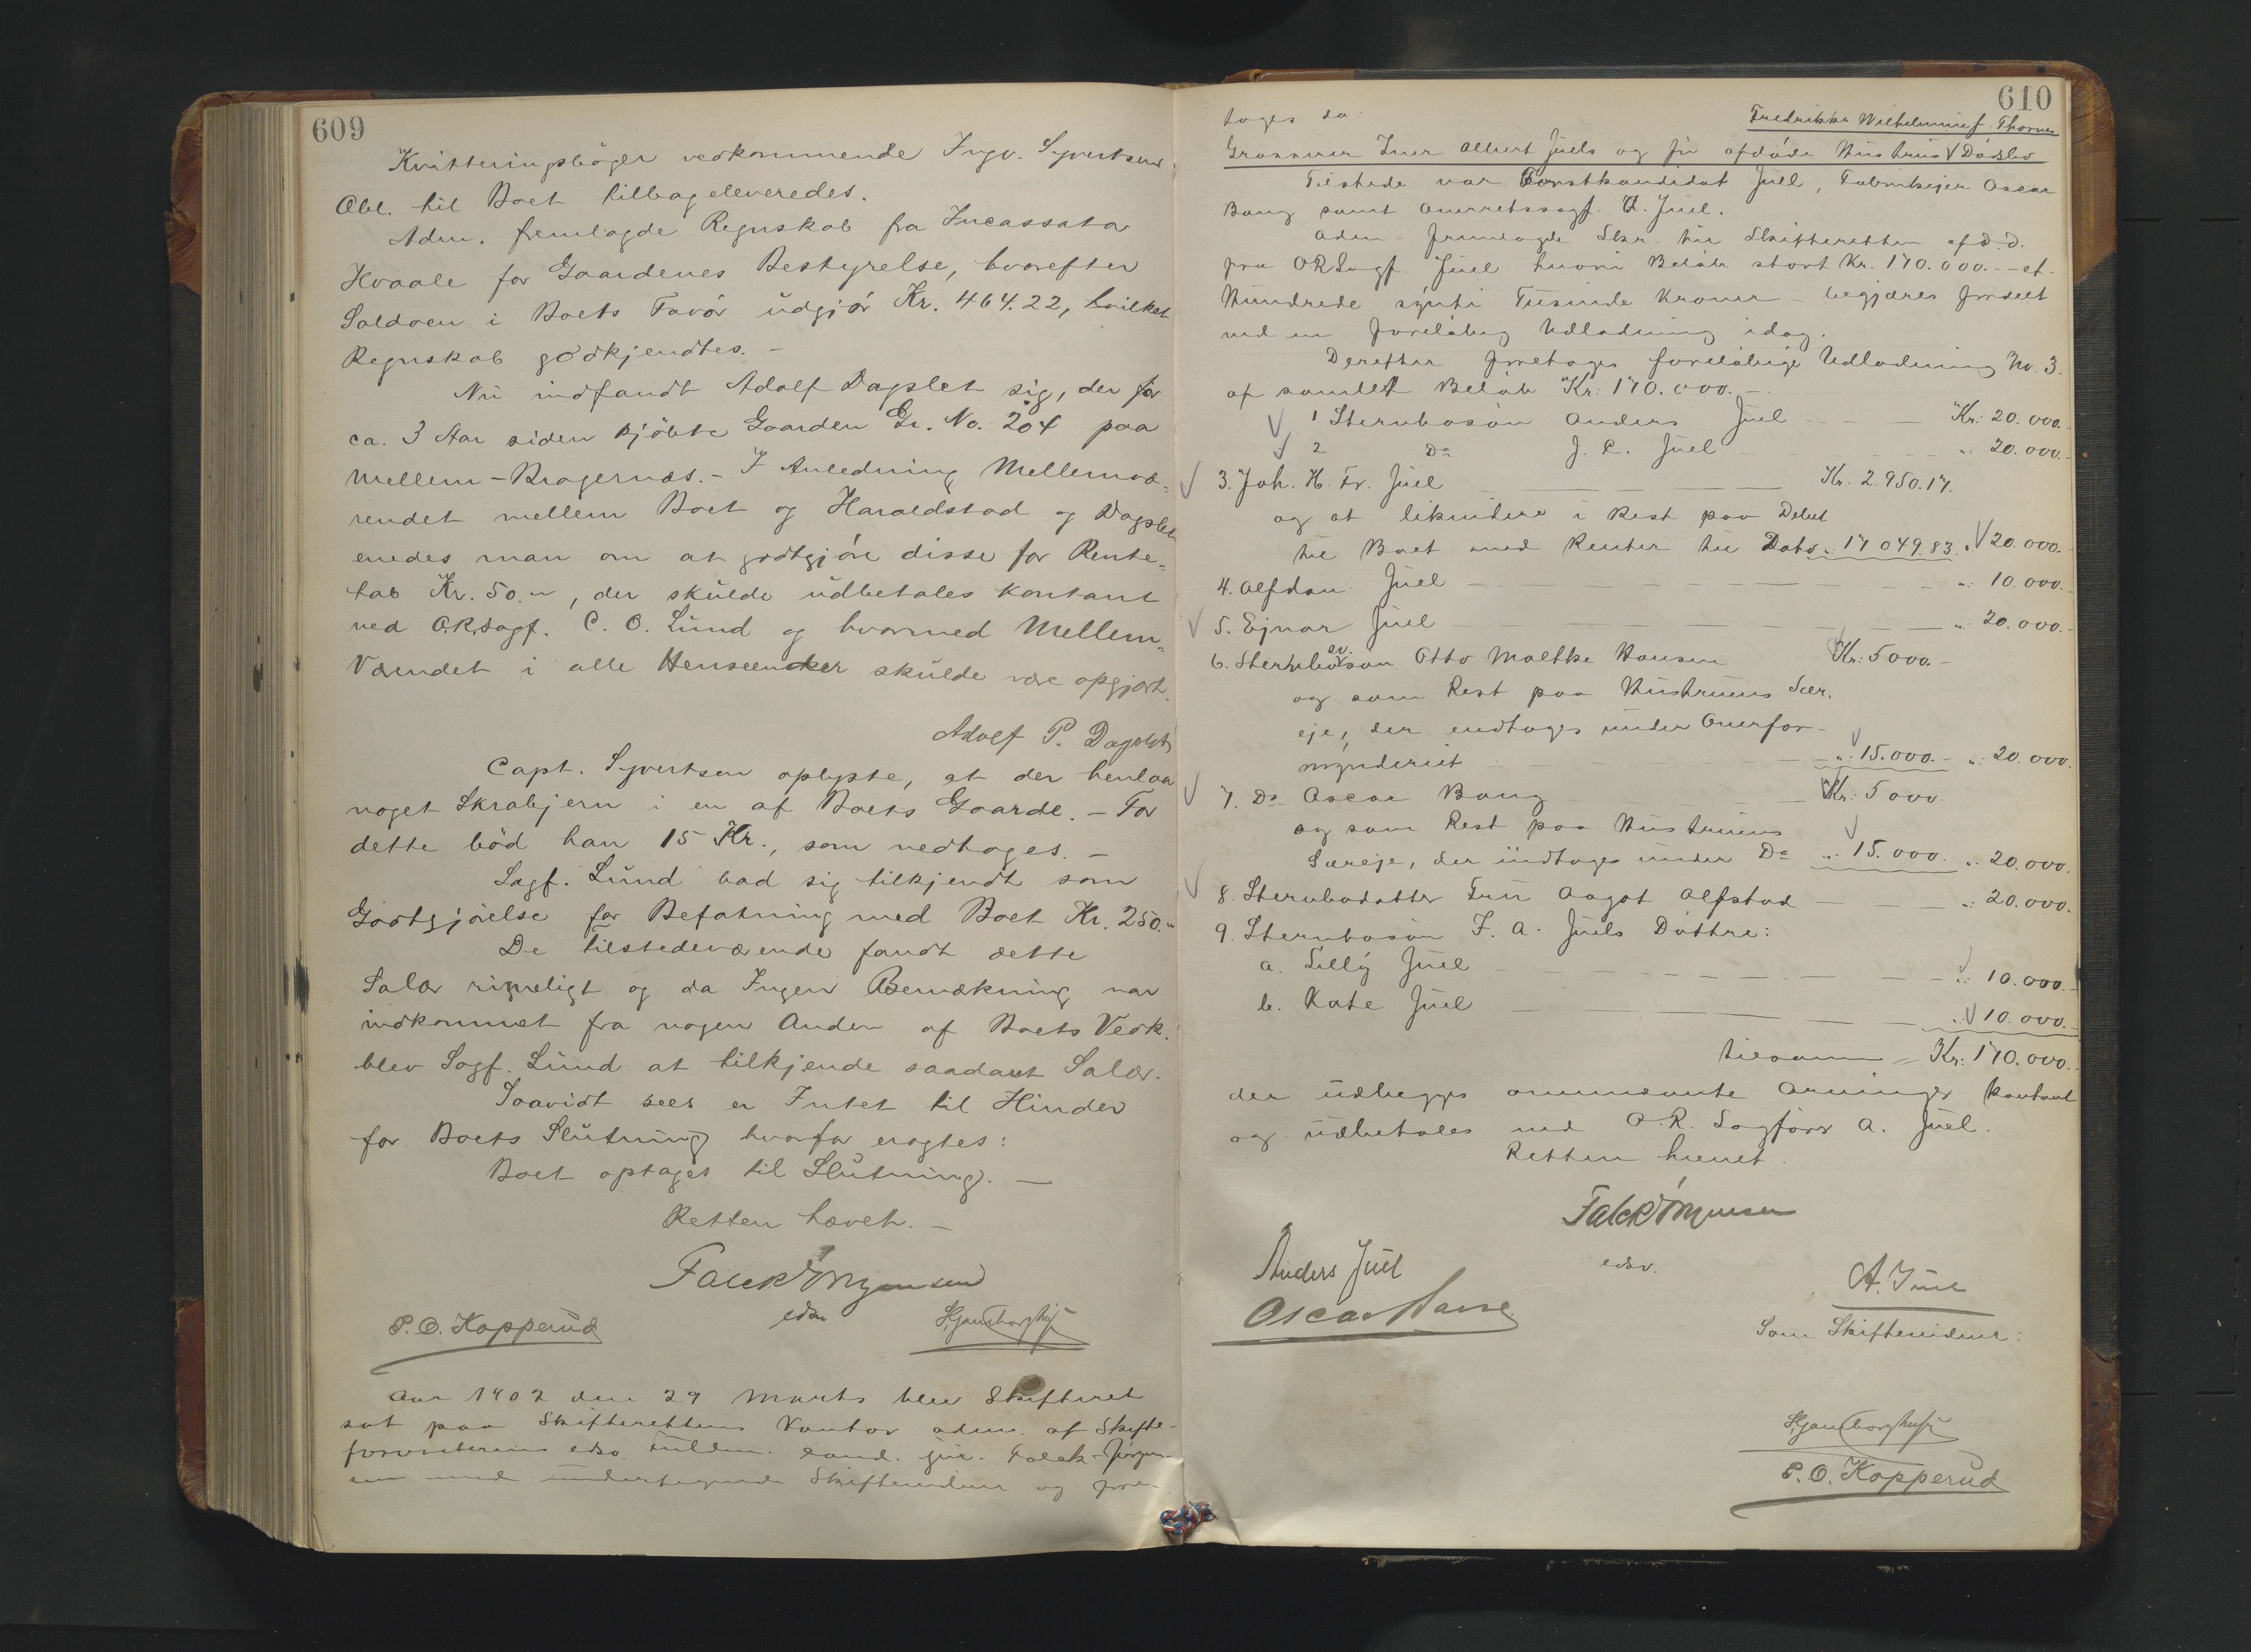 609
Kvitteringsbøger vedkommende Ingv. Syvertsens
Obl. til Boet tilbageleveredes.
Adm. fremlagde Regnskab fra Incassator
Hvaale for Gaardenes Bestyrelse, hvorefter
Saldoen i Boets Favør udgjør Kr. 464.22, hvilket
Regnskab godkjendtes. -
Nu indfandt Adolf Dagslet sig, der for
ca. 3 Aar siden kjøbte Gaarden Gr. No. 204 paa
Mellem-Bragernæs. - I Anledning Mellemvæ=
rendet mellem Boet og Haraldstad og Dagslet
enedes man om at godtgjøre disse for Rente=
tab Kr. 50.-, der skulde udbetales kontant
ved O.R.sagf. C. O. Lund og hvormed Mellem=
Værendet i alle Henseender skulde være opgjort.
Adolf P. Dagslet
Capt. Syvertsen oplyste, at der henlaa
noget Skrabjern i en af Boets Gaarde. - For
dette bød han 15 Kr., som vedtoges. -
Sagf. Lund bad sig tilkjendt som
Godtgjørelse for Befatning med Boet Kr. 250.-
De Tilstedeværende fandt dette
Salær rimeligt og da Ingen Bemærkning var
indkommet fra nogen Anden af Boets Vedk.
blev Sagf. Lund at tilkjende saadant Salær.
Saavidt sees er Intet til Hinder
for Boets Slutning hvorfor eragtes:
Boet optages til Slutning. -
Retten hævet. -
Falck Jørgensen
edsv
P. O. Kopperud
Aar 1902 den 29 Marts blev Skifteret
sat paa Skifterettens Kontor adm. af Skifte-
forvalterens edsv. Fuldm. cand. jur. Falck-Jørgen-
sen med undertegnede Skiftevidner og fore-
610
toges da: Fredrikke Wilhelmine f. Thorne
Grosserer Iver Albert Juels og før afdøde Hustrus V Dødsbo
Tilstede var Forstkandidat Juel, Fabrikejer Oscar
Bang samt Overretssagf. A. Juel.
Adm. fremlagde Skr. til Skifteretten af d. d.
fra ORSagf. Juel hvori Beløb stort Kr. 170.000.- - et-
Hundrede sytti Tusinde Kroner - begjæres fordelt
ved en foreløbig Udlodning idag.
Derefter foretoges foreløbige Udlodning No. 3.
af samlet Beløb Kr. 170.000. -
1 Stervbosøn Anders Juel Kr: 20.000.
2 Do J. C. Juel " 20.000.
3. Joh. H. Fr. Juel Kr. 2.950.17.
og at likvidere i Rest paa Debet
til Boet med Renter til Dato ": 17 049.83. " 20.000.
4. Alfdan Juel ": 10.000.
5. Ejnar Juel ": 20.000.
6. Stervbosvsøn Otto Moltke Hansen Kr: 5000.-
og som Rest paa Hustruens Sær.
eje, der indtages under Overfor-
mynderiet ": 15.000.- ": 20.000.
7. Do Oscar Bang Kr: 5000.
og som Rest paa Hustruens
Særeje, der indtages under Do ": 15.000. ": 20.000.
8. Stervbodatter Fru Aagot Alfstad ": 20.000.
9. Stervbosøn F. A. Juels Døttre:
a. Lilly Juel ": 10.000.-
b. Kate Juel ": 10.000.-
tilsammen Kr: 170.000.
der udlægges ommeldte Arvinger kontant
og udbetales ved O.R. Sagfører A. Juel.
Retten hævet.
Falck Jørgensen
edsv.
Anders Juel
A. Juel
Oscar Bang
Som Skiftevidner:
P. O. Kopperud